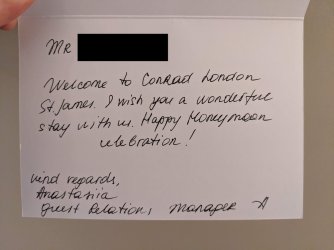 Mr
Welcome to Conrad London
St. James. I wish you a wonderful
stay with us. Happy Honeymoon
celebration!
kind regards,
Anastasiia
Guest Relations Manager